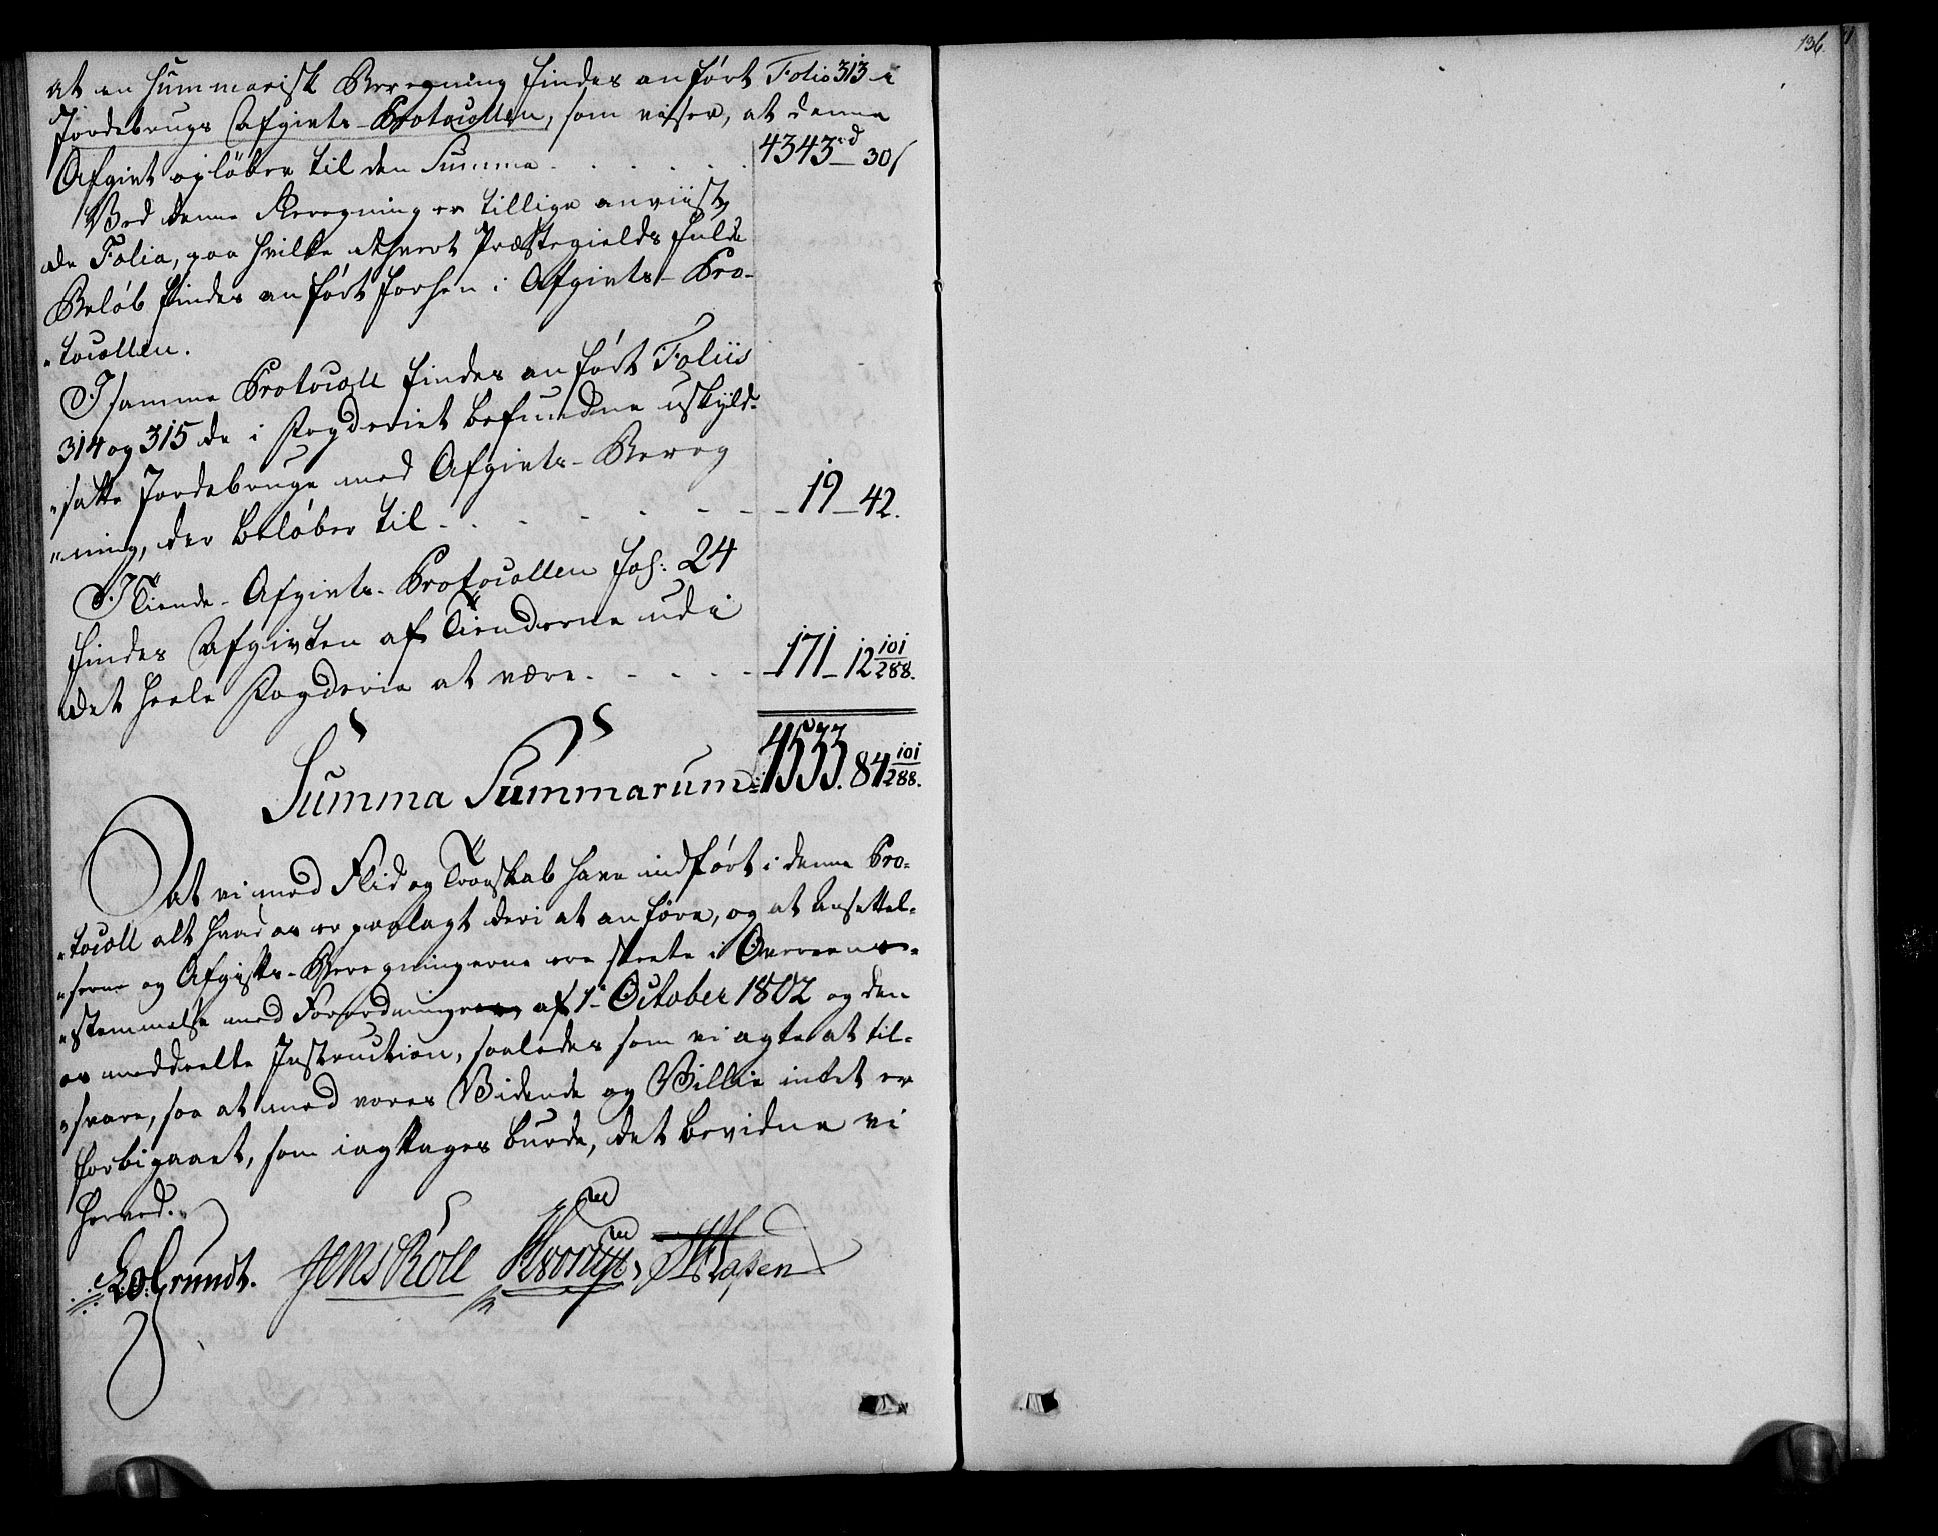 136.
at en summarisk Beregning findes anført Folio 313 i
Jordebrugs Afgivts-Protocollen, som viser, at denne
Afgivt opløber til den Summa . . . . . 4343 rd 30 s
Ved denne Beregning er tillige anviist
de Folia, paa hvilke ethvert Præstegields fulde
Beløb findes anført forhen i Afgivts-Pro-
"tocollen.
I samme Protocoll findes anført Foliis
314 og 315 de i Fogderiet befundne uskyld-
"satte Jordebruge med Afgivts-Bereg
"ning, der beløber til . . . . . 19 - 42.
I Tiende-Afgivts-Protocollen Fol: 24
findes Afgivten af Tienderne udi
det heele Fogderie at være . . . . . 171 - 12 101/288.
Summa Summarum: 4533. 84 101/288.
At vi med Flid og Troeskab have indført i denne Pro-
"tocoll alt hvad os er paalagt deri at anføre, og at Ansettel-
"serne og Afgifts-Beregningerne ere skeete i Overeens-
"stemmelse med Forordningen af 1te October 1802 og den
os meddeelte Instruction, saaledes som vi agte at til-
"svare, saa at med vores Vidende og Villie intet er
forbigaaet, som iagttages burde, det bevidne vi
herved.
Grundt. Jens Roll